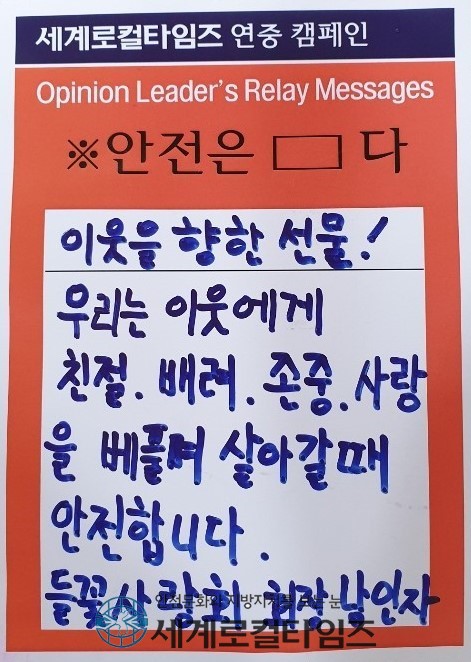 세계로컬타임즈 연중 캠페인
Opinion Leader's Relay Messages
※안전은 □ 다
이웃을 향한 선물!
우리는 이웃에게
친절. 배려. 존중. 사랑
을 베풀며 살아갈때
안전합니다.
들꽃사랑회 회장 남인자
안전문화와 지방자치를 보는 눈
세계로컬타임즈